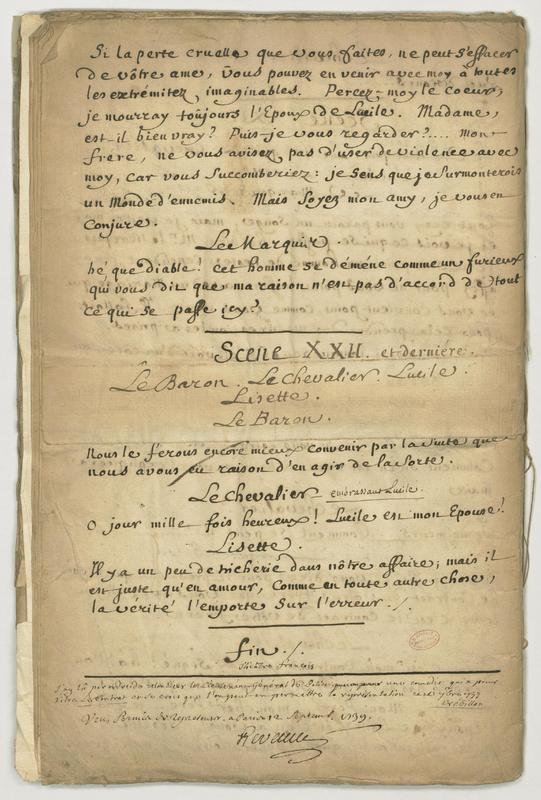 Si la perte cruelle que vous faites, ne peut s'effacer
de vôtre ame, vous pouvez en venir avec moy à toutes
les extrémitez imaginables. Percez-moy le coeur,
je mourray toujours l'Epoux de Lucile. Madame,
est-il bien vray? Puis-je vous regarder?.... mon
frere, ne vous avisez pas d'user de violence avec
moy, car vous succomberiez: je sens que je surmonterois
un Monde d'ennemis. Mais soyez mon amy, je vous en
conjure.
Le Marquis.
hé que diable! cet homme se déméne comme un furieux
qui vous dit que ma raison n'est pas d'accord de tout
ce qui se passe icy?
Scene XXII. et derniére.
Le Baron. Le Chevalier. Lucile.
Lisette.
Le Baron.
Nous le ferons encore mieux convenir par la suite que
nous avons eu raison d'en agir de la sorte.
Le Chevalier embrassant Lucile.
O jour mille fois heureux! Lucile est mon Epouse!
Lisette.
Il y a un peu de tricherie dans nôtre affaire; mais il
est juste qu'en amour, comme en toute autre chose,
la vérité l'emporte sur l'erreur ./.
fin ./.
Théâtre françois
J'ay lu par ordre de Monsieur le Lieutenant Général de Police une comédie qui a pour
titre et je crois que l'on peut en permettre la représentation ce
Crébillon
Veu, Permis de représenter, a Paris ce 12 Septemb. 1739.